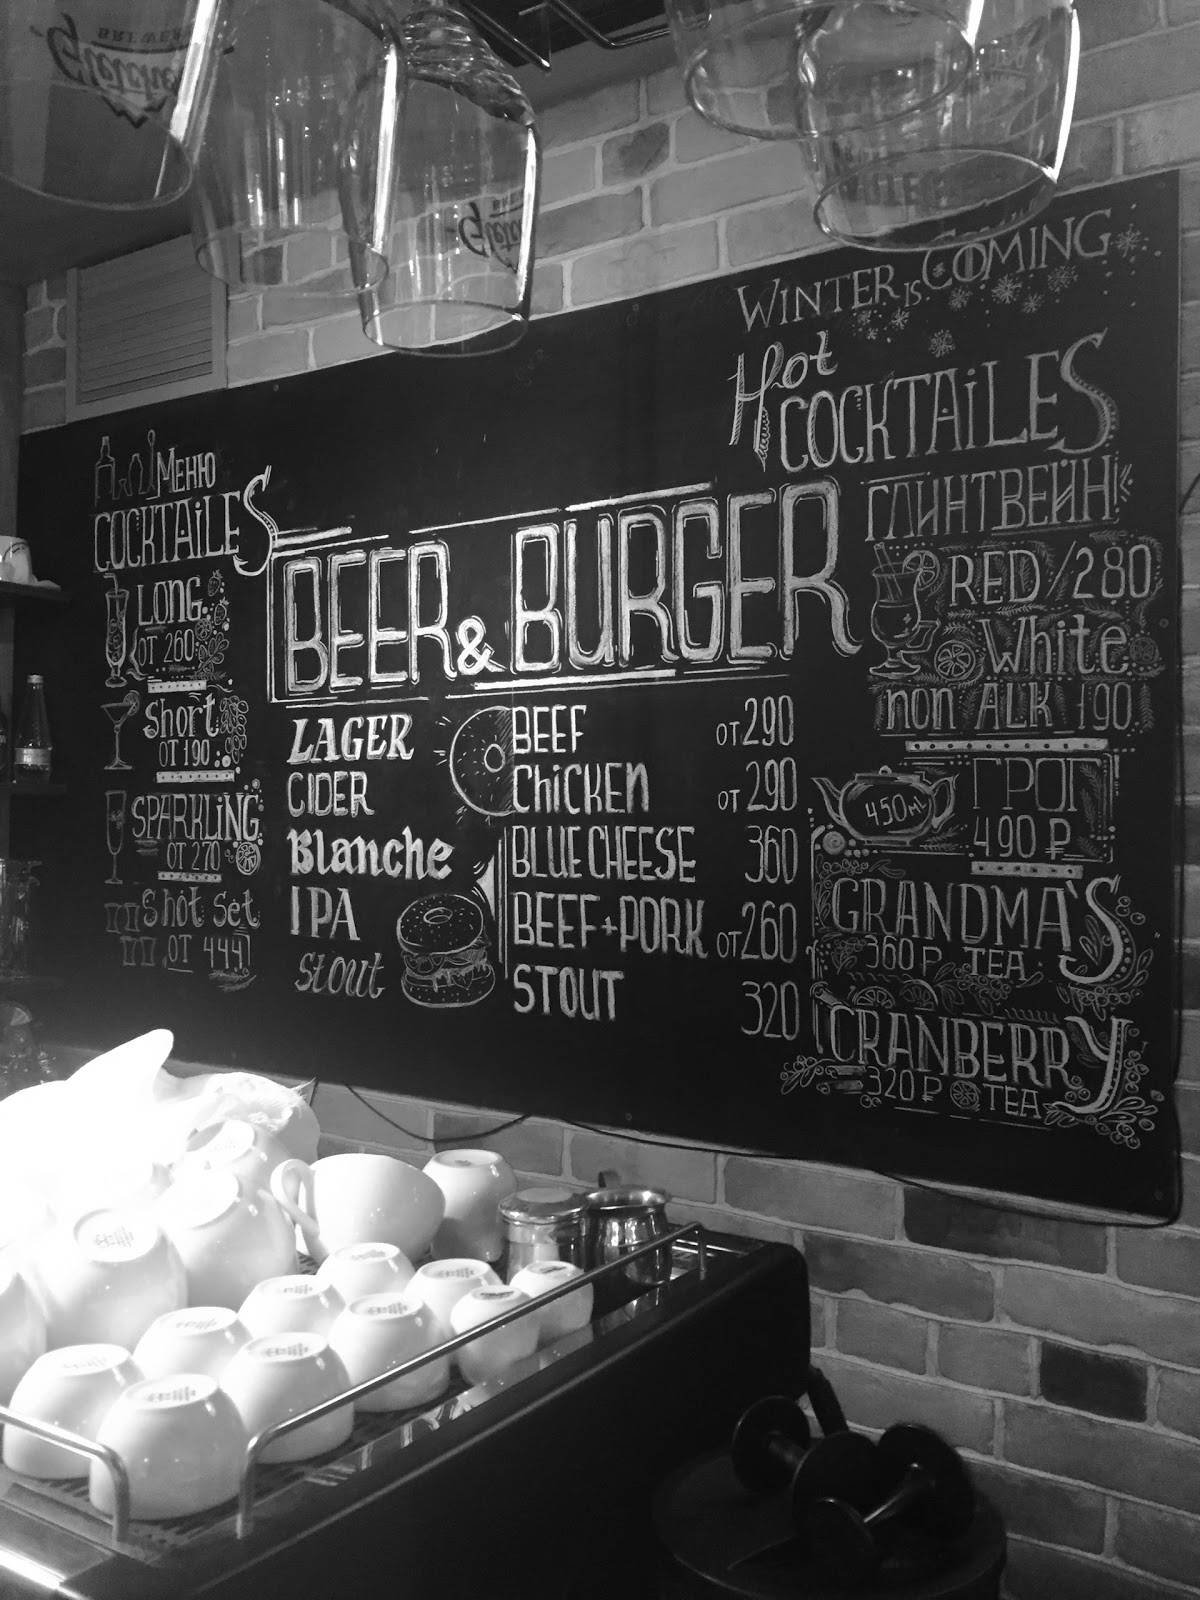 BREWERY
WINTER IS COMING
Hot
COCKTAiLES
ГЛИНТВЕЙН
RED/280
White
non ALK 190
450 ML
ГРОГ
490 ₽
GRANDMA'S
360₽ TEA
CRANBERRY
320₽ TEA
МЕНЮ
COCKTAiLES
LONG
ОТ 260
Short
ОТ 190
SPARKLiNG
ОТ 270
Shot Set
ОТ 444
BEER & BURGER
LAGER
CIDER
Blanche
IPA
Stout
BEEF ОТ 290
CHiCKEN ОТ 290
BLUE CHEESE 360
BEEF+PORK ОТ 260
STOUT 320